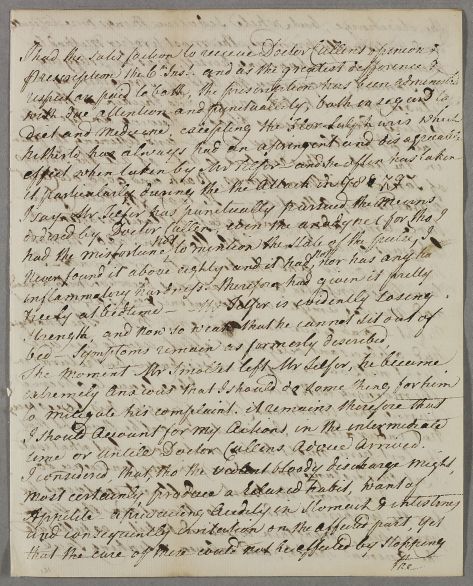 I had the satisfaction to receive Doctor Cullens opinion &
Prescription the 6th Ins. and as the greatest defference &
respect are paid to both, the prescription has been administer'd
with due attention and punctuality, both in regard to
Diet and Medicine excepting the which
hitherto has always had an astringent and disagreeable
effect when taken by Mr Telfer and he often has taken
it particularly during the Attack in 78 & 79
I say Mr Telfer has punctually pursued the Means
ordered by Doctor Cullen even the anodyne (for tho I
had the misfortune not to mention the State of the pulse, I
never found it above eighty and it had nor has any
inflammatory hardness) therefore had given it pretty
freely at bedtime — Mr Telfer is evidently losing
Strength, and now so weak that he cannot sit out of
bed Symptoms remain as formerly described
The moment Mr left Mr Telfer, he became
extremely anxious that I should do some thing for him
to mitigate his complaint. it remains therefore that
I should account for my Actions in the intermediate
time or untill Doctor Cullens Advice arrived.
I considered that tho the violent bloody discharge might
most certainly produce a relaxed habit, want of
Appetite a prevailing Acidity in Stomach & intestines
and consequently irritation on the affected part, yet
that the cure of them could not be effected by Stopping
the